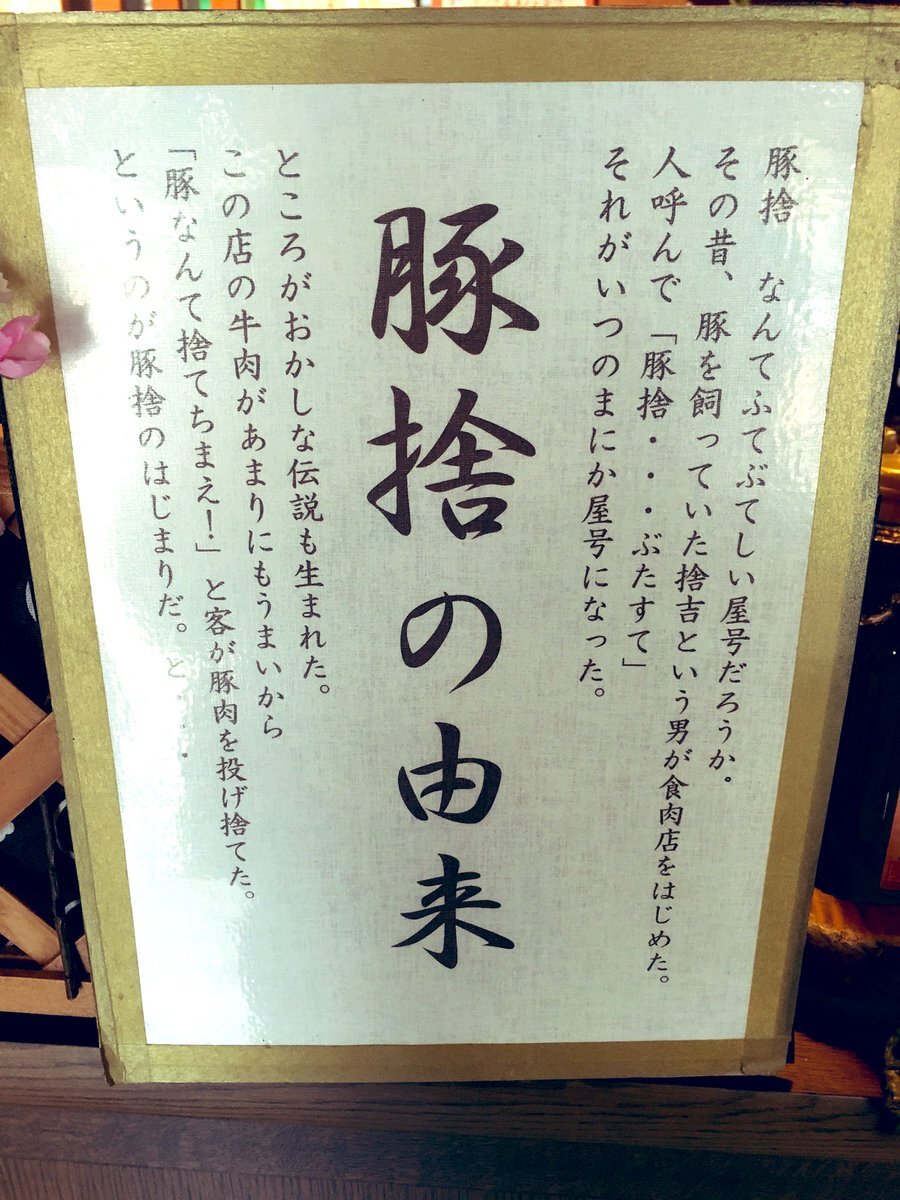 豚捨　なんてふてぶてしい屋号だろうか。
その昔、豚を飼っていた捨吉という男が食肉店をはじめた。
人呼んで「豚捨・・・ぶたすて」
それがいつのまにか屋号になった。
豚捨の由来
ところがおかしな伝説も生まれた。
この店の牛肉があまりにもうまいから
「豚なんて捨てちまえ!」と客が豚肉を投げ捨てた。
というのが豚捨のはじまりだ。と・・・